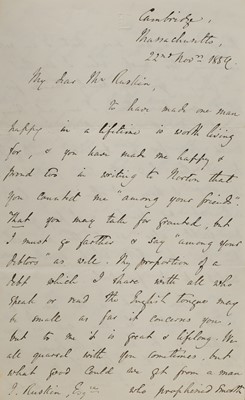 Cambridge,
Massachusetts,
22nd Novr. 1859
My dear Mr Ruskin,
To have made one man
happy in a lifetime is worth living
for, & you have made me happy &
proud too in writing to Norton that
you counted me "among your friends."
That you may take for granted, but
I must go farther & say "among your
debtors" as well. My proportion of a
debt which I share with all who
speak or read the English tongue may
be small as far it concerns you,
but to me it is great & lifelong. We
all quarrel with you sometimes, but
what good could we get from a man
J. Ruskin, Esqre. who prophesied smooth